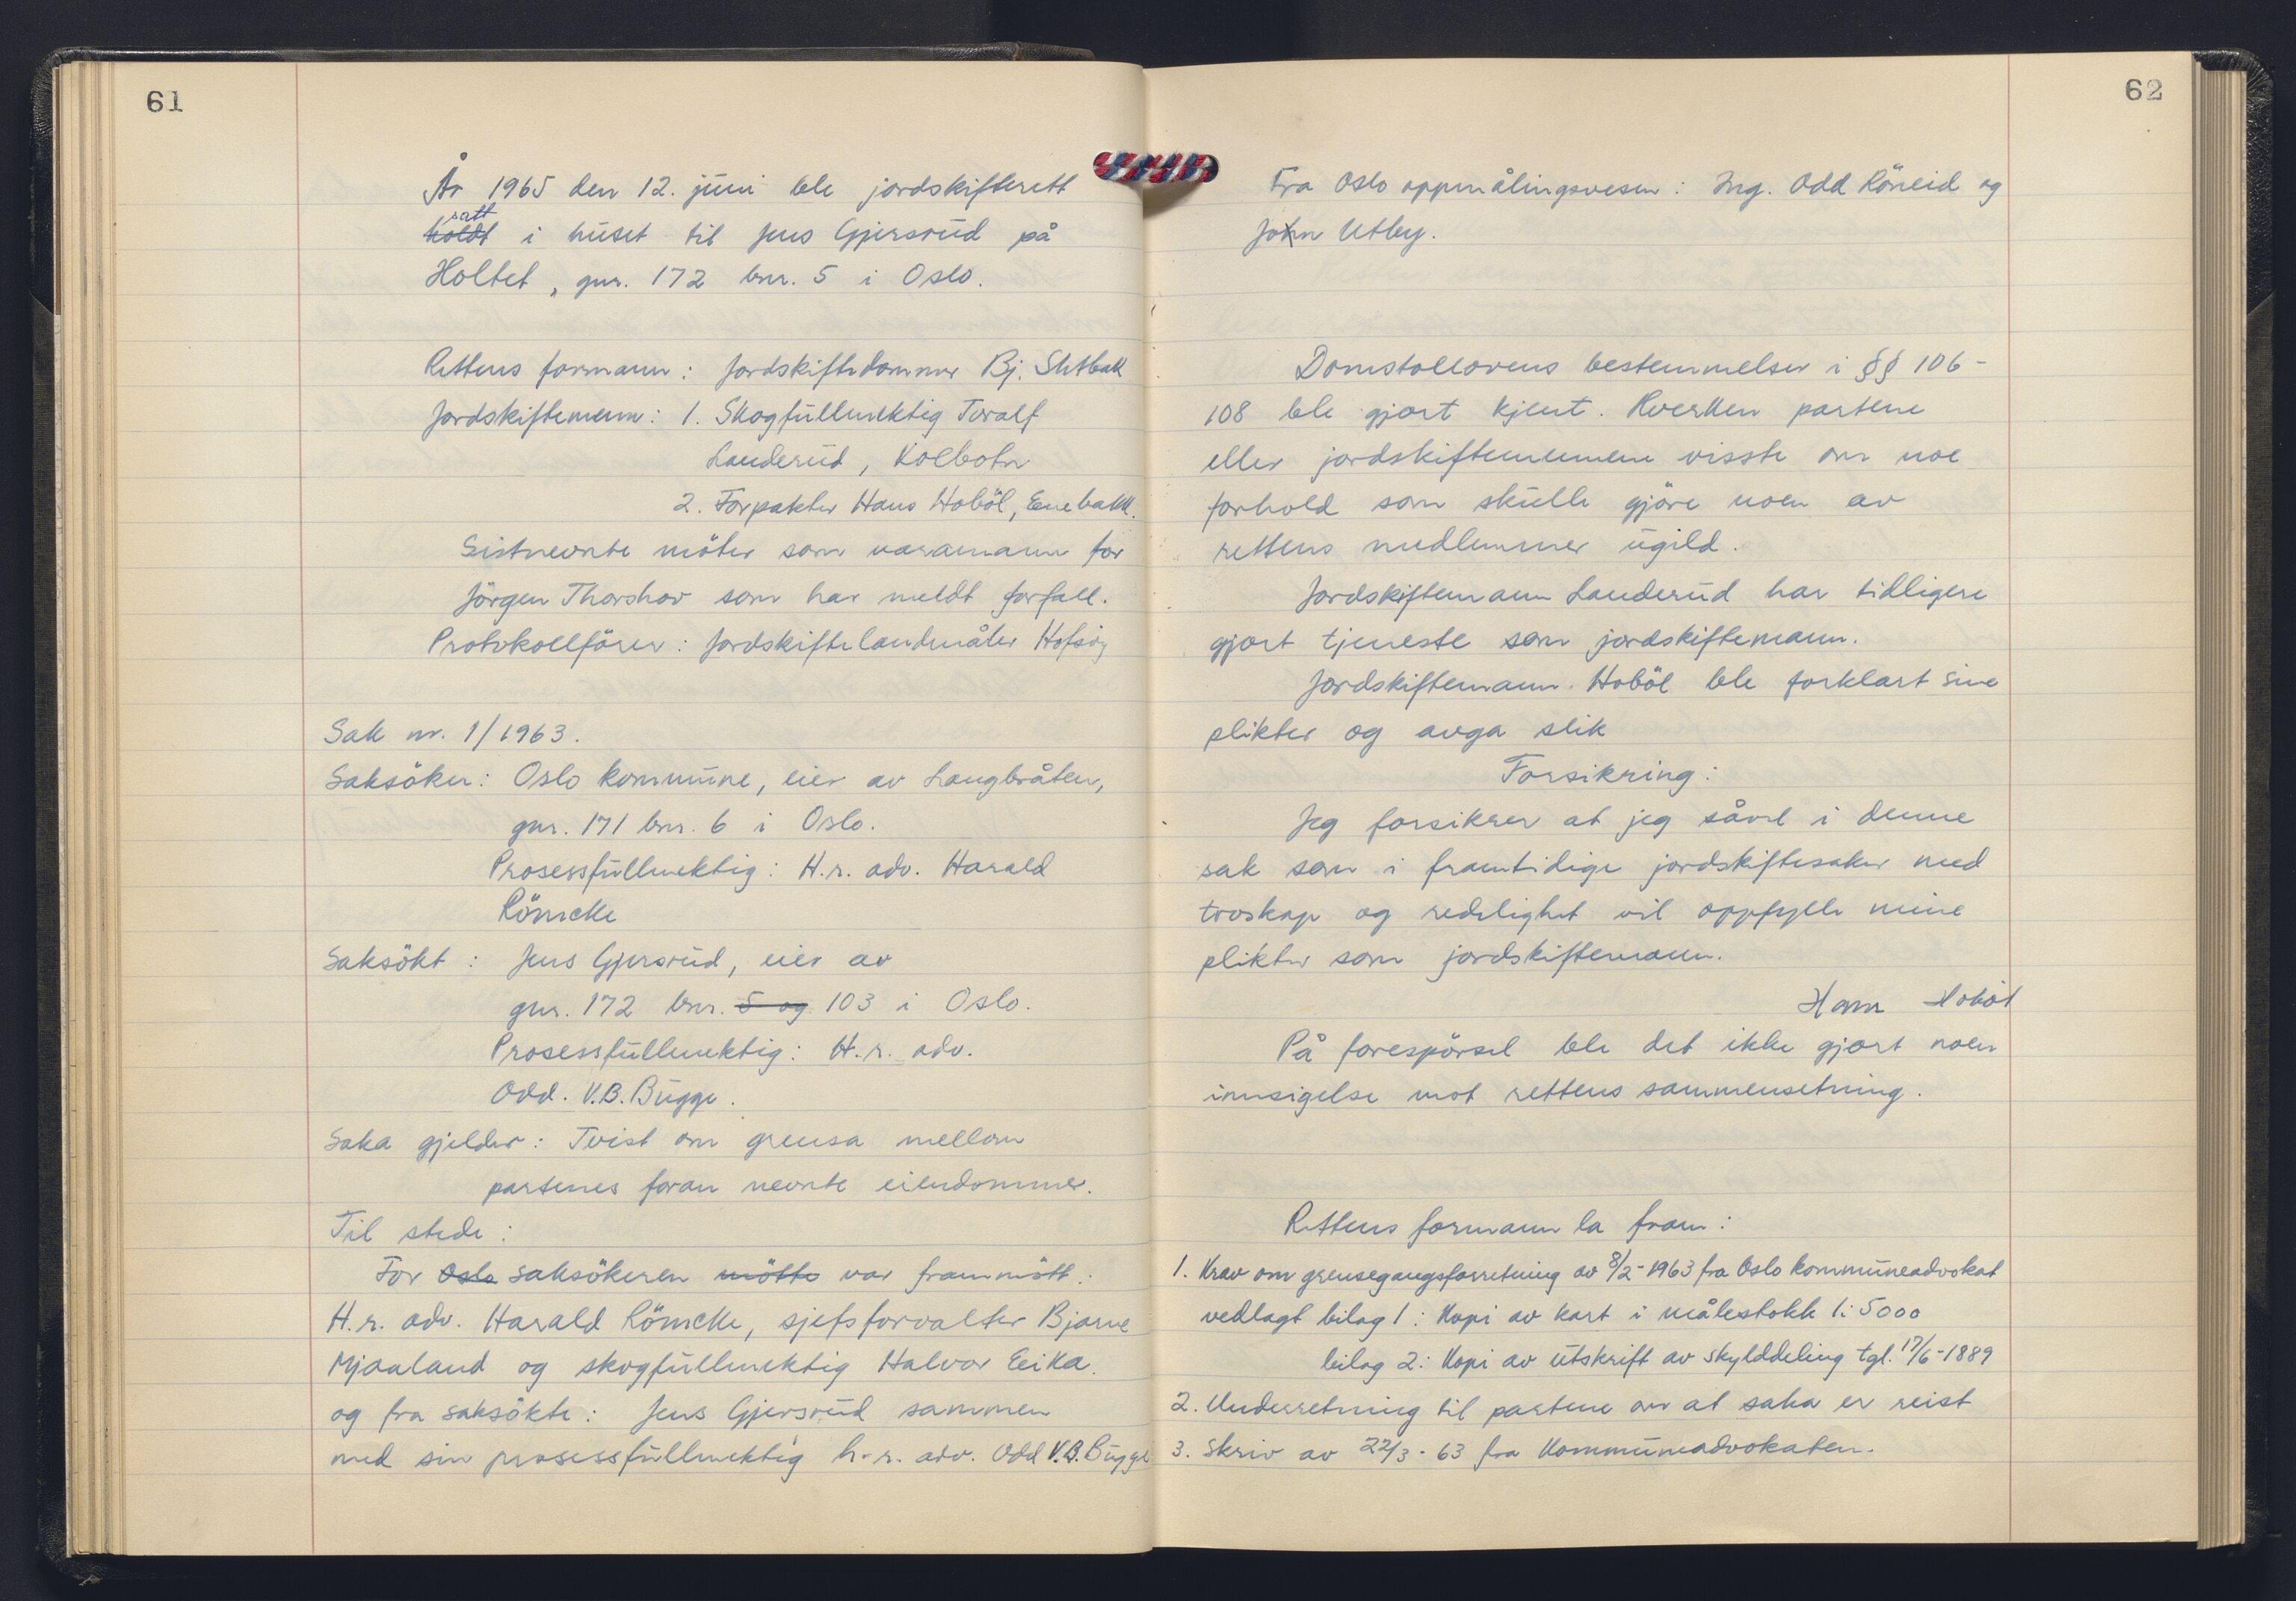 61
År 1965 den 12. juni ble jordskifterett
satt
holdt i huset til Jens Gjersrud på
Holtet, gnr. 172 bnr. 5 i Oslo.
Rettens formann: Jordskiftedommer Bj. Sletbak
Jordskiftemenn: 1. Skogfullmektig Toralf
Lauderud, Kolbotn
2. Forpakter Hans Høbøl, Enebakk.
Sistnevnte möter som varamann for
Jörgen Thorshov som har meldt forfall.
Protokollförer: Jordskiftelandmåler Hofsöy
Sak nr. 1/1963.
Saksöker: Oslo kommune, eier av Langbråten,
gnr. 171 bnr. 6 i Oslo.
Prosessfullmektig: H.r. adv. Harald
Römcke
Saksökt: Jens Gjersrud, eier av
gnr. 172 bnr. 5 og 103 i Oslo.
Prosessfullmektig: H.r. adv.
Odd. V.B. Bugge.
Saka gjelder: Tvist om grensa mellom
partenes foran nevnte eiendommer.
Til stede:
For Oslo saksökeren mötte var frammött:
H.r. adv. Harald Römcke, sjefsforvalter Bjarne
Mjaaland og skogfullmektig Halvor Eeika.
og fra saksökte: Jens Gjersrud sammen
med sin prosessfullmektig h.r. adv. Odd V.B. Bugge
62
Fra Oslo oppmålingsvesen: Ing. Odd Röneid og
John Utby.
Domstollovens bestemmelser i §§ 106-
108 ble gjort kjent. Hverken partene
eller jordskiftemennene visste om noe
forhold som skulle gjöre noen av
rettens medlemmer ugild.
Jordskiftemann Lauderud har tidligere
gjort tjeneste som jordskiftemann.
Jordskiftemann Høböl ble forklart sine
plikter og avga slik
Forsikring:
Jeg forsikrer at jeg såvel i denne
sak som i framtidige jordskiftesaker med
troskap og redelighet vil oppfylle mine
plikter som jordskiftemann.
Hans Hoböl
På forespörsel ble det ikke gjort noen
innsigelse mot rettens sammensetning.
Rettens formann la fram:
1. Krav om grensegangsforretning av 8/2-1963 fra Oslo kommuneadvokat
vedlagt bilag 1: Kopi av kart i målestokk 1:5000
bilag 2: Kopi av utskrift av skylddeling tgl. 17/6-1889
2. Underretning til partene om at saka er reist
3. Skriv av 22/3-63 fra Kommuneadvokaten.